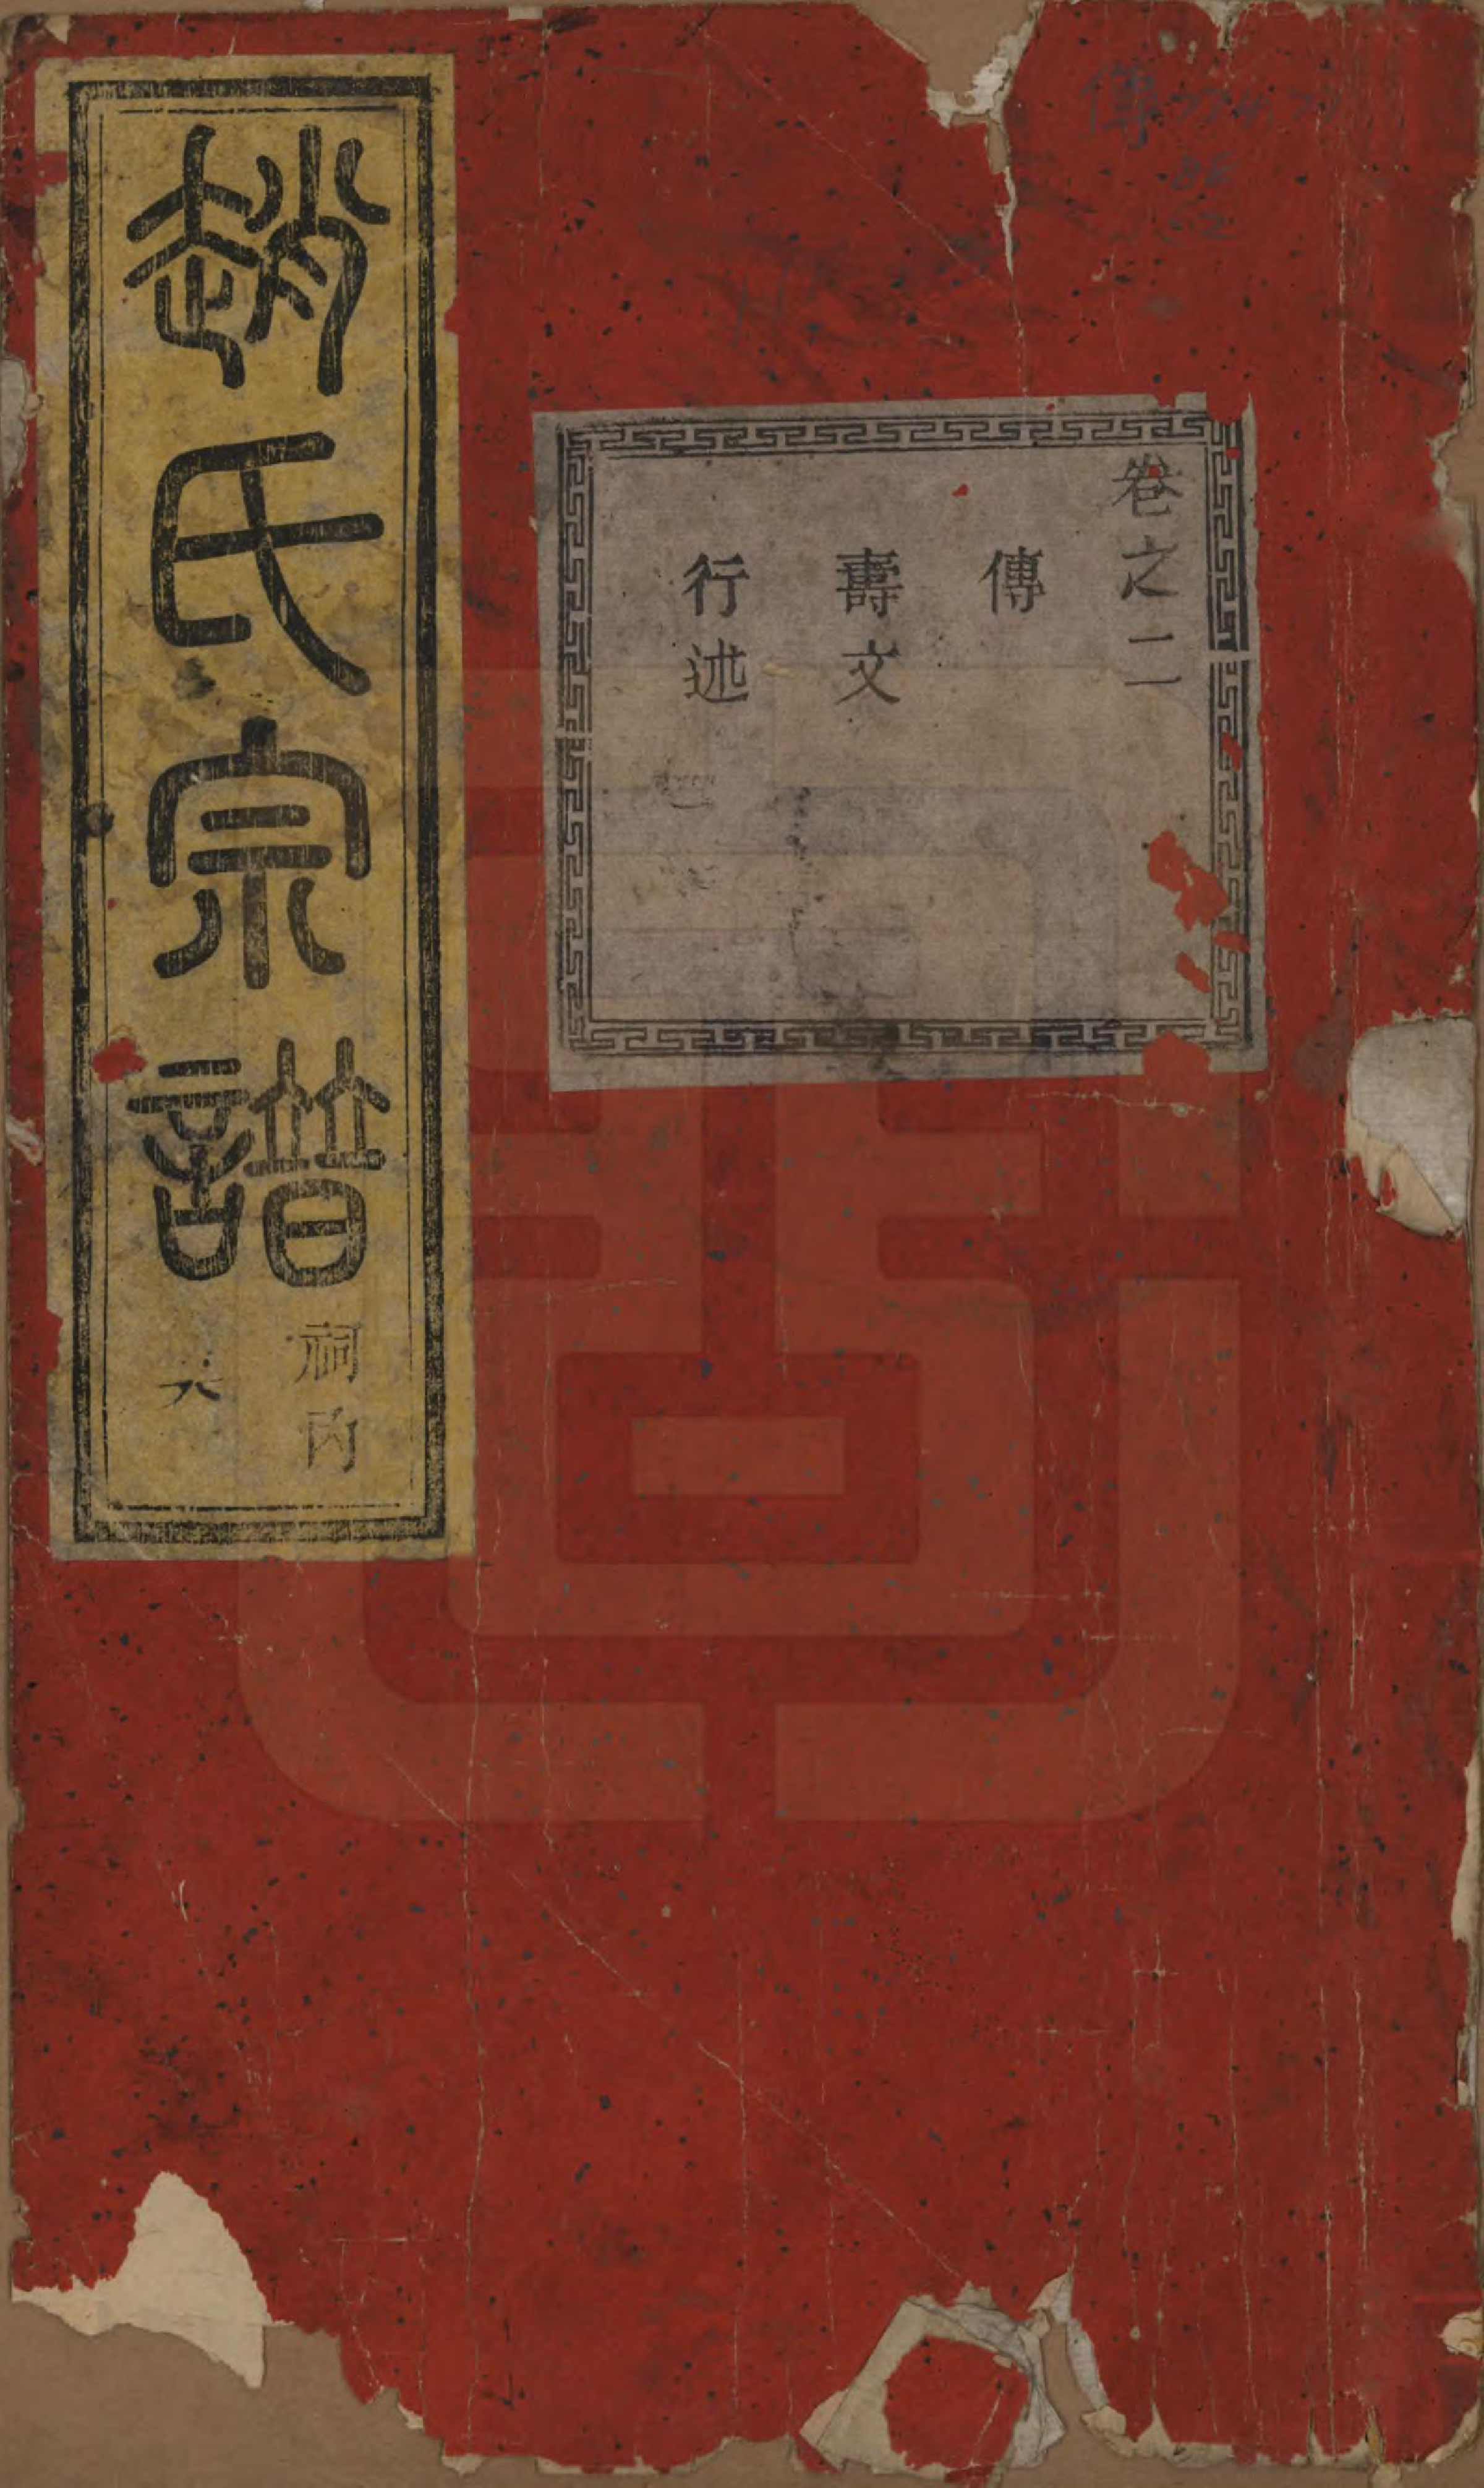 趙氏宗譜
祠內
六
卷之二
傳
壽文
行述
傳